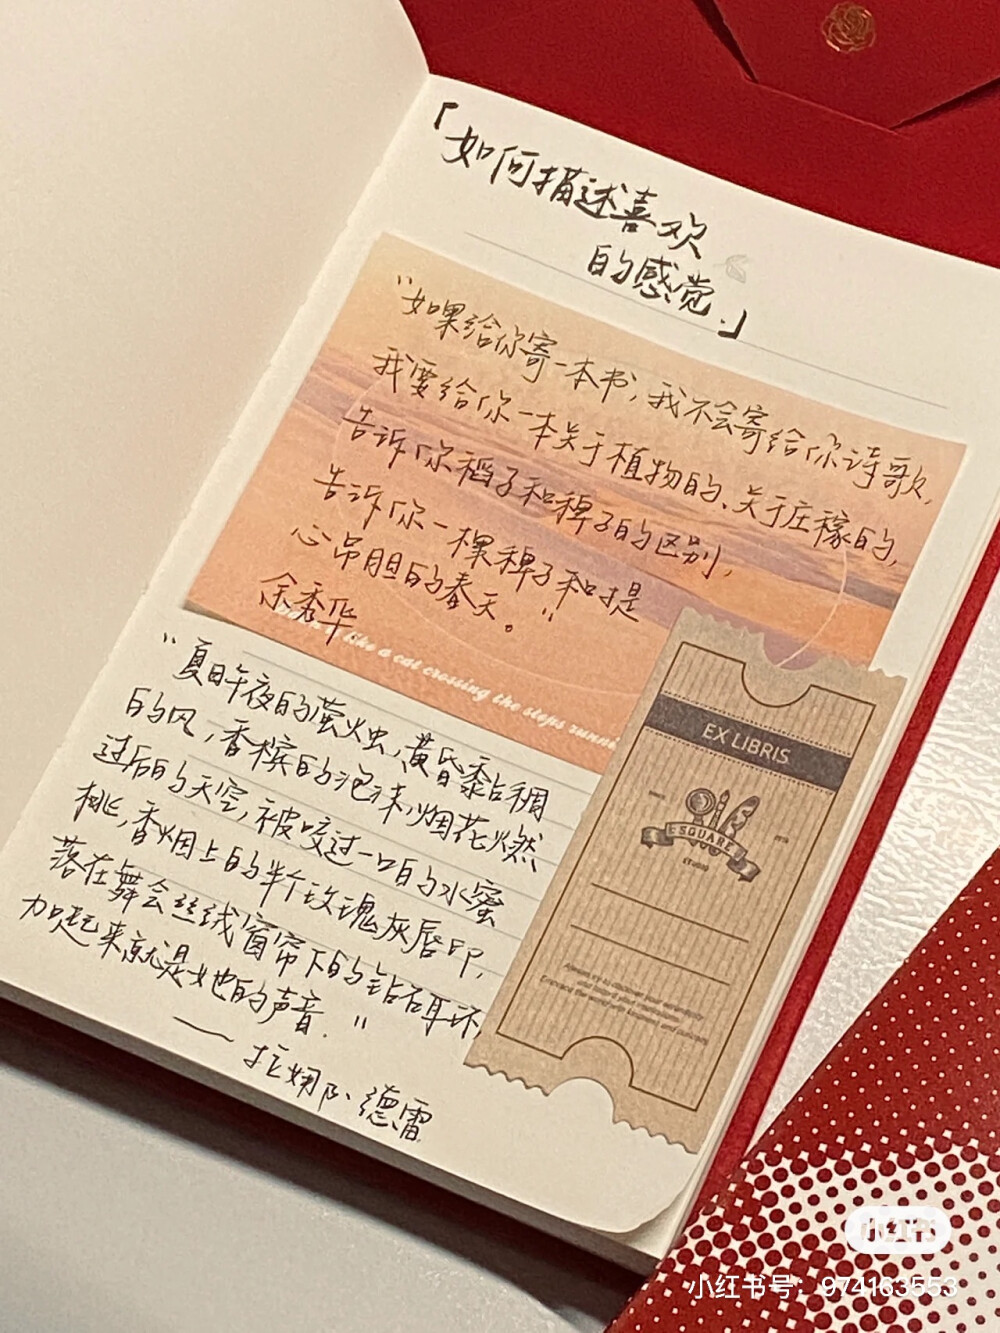 「如何描述喜欢
的感觉.」
"如果给你寄一本书,我不会寄给你诗歌,
我要给你一本关于植物的、关于庄稼的,
告诉你稻子和稗子的区别,
告诉你一棵稗子和提
心吊胆的春天。"
余秀华
like a cat crossing the steps
"夏日午夜的萤火虫,黄昏黏稠
的风,香槟的泡沫,烟花燃
过后的天空,被咬过一口的水蜜
桃,香烟上的半个玫瑰灰唇印,
落在舞会丝绒窗帘下的钻石耳环,
加起来就是她的声音."
——拉娜队德雷
EX LIBRIS
ESQUARE
小红书
小红书号：974163553